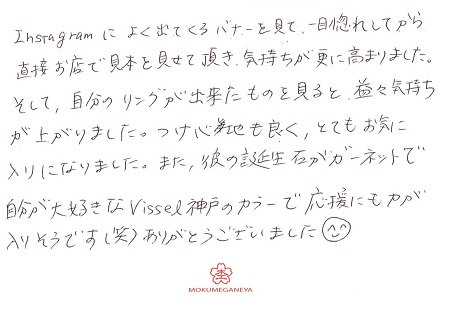 Instagram によく出てくるバナーを見て、一目惚れしてから
直接お店で見本を見せて頂き、気持ちが更に高まりました。
そして、自分のリングが出来たものを見ると、益々気持ち
が上がりました。つけ心地も良く、とてもお気に
入りになりました。また、彼の誕生石がガーネットで
自分が大好きなVissel神戸のカラーで応援にも力が
入りそうです(笑)ありがとうございました
MOKUMEGANEYA